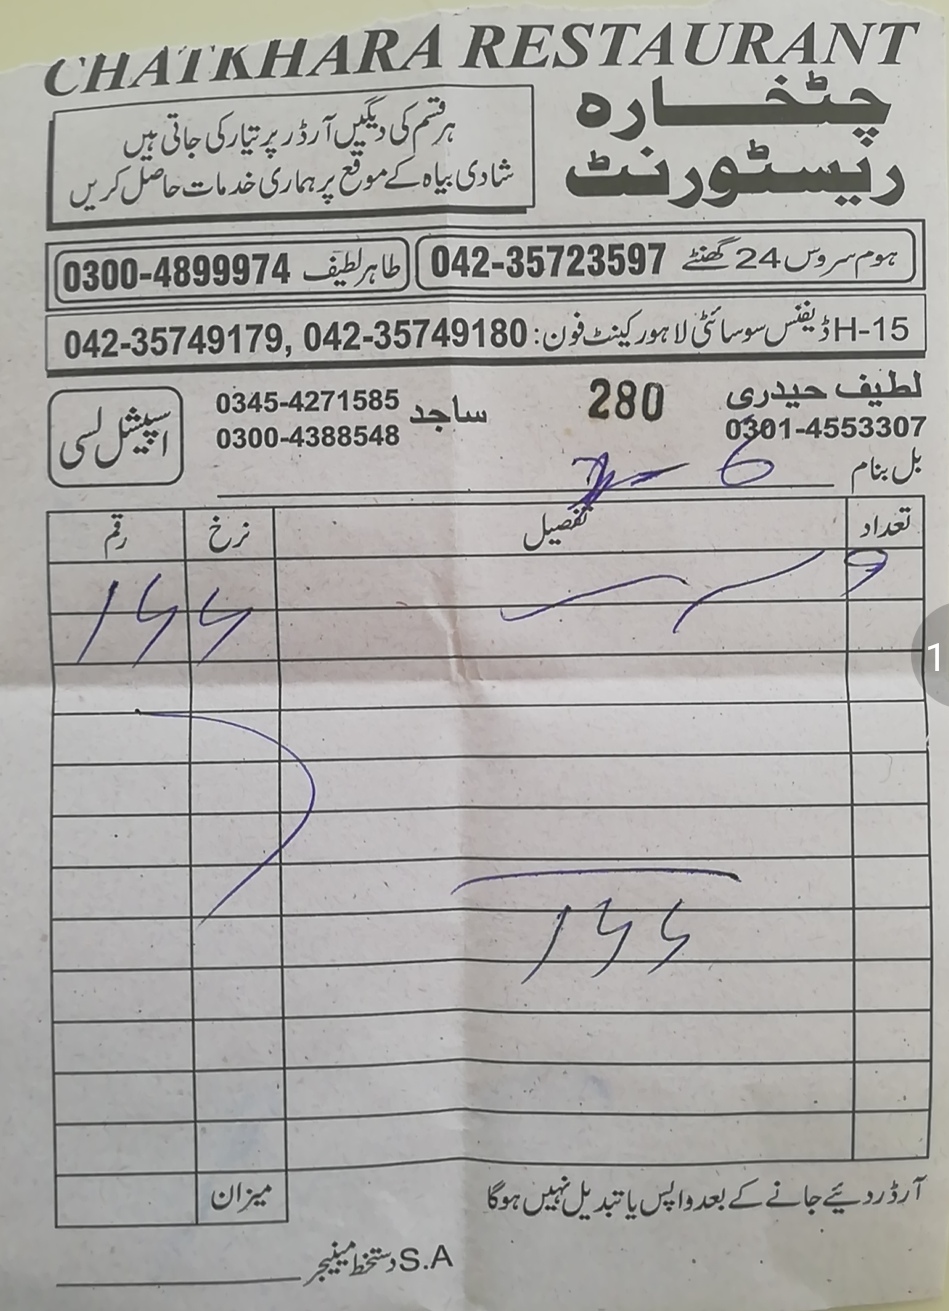 CHATKHARA RESTAURANT
چٹخارہ
ریسٹورنٹ
ہر قسم کی دیگیں آرڈر پر تیار کی جاتی ہیں
شادی بیاہ کے موقع پر ہماری خدمات حاصل کریں
ہوم سروس 24 گھنٹے 042-35723597
طاہر لطیف 0300-4899974
H-15 ڈیفنس سوسائٹی لاہور کینٹ فون: 042-35749180 ,042-35749179
لطیف حیدری
0301-4553307
280
ساجد 0345-4271585
0300-4388548
اسپیشل لسی
بل بنام
تعداد تفصیل نرخ رقم
میزان
آرڈر دئیے جانے کے بعد واپس یا تبدیل نہیں ہوگا
S.A دستخط مینیجر
1